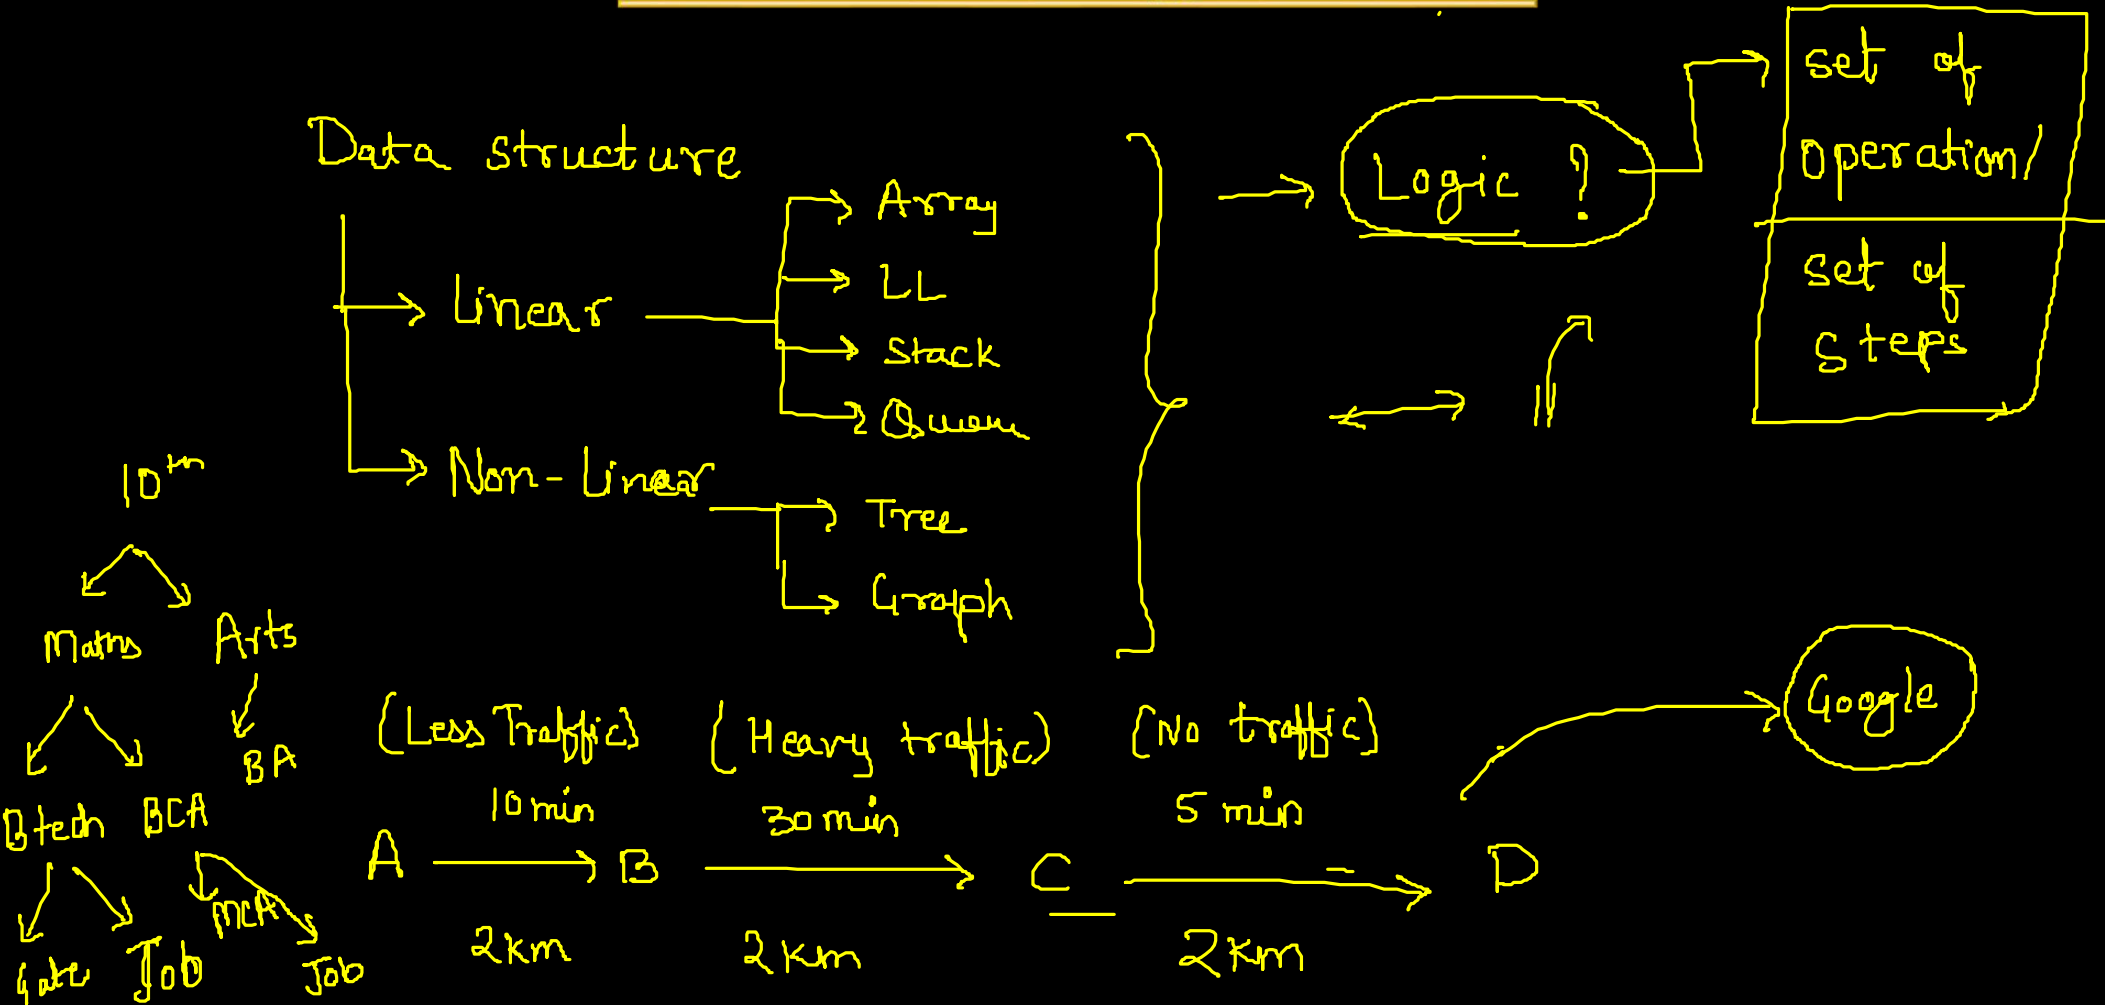 Data structure
Linear
Array
LL
Stack
Non-Linear
Tree
Graph
Logic ?
set of
operation/
set of
steps
10th
Maths Arts
Btech BCA BA
Gate Job MCA Job
(Less Traffic) (Heavy traffic) (No traffic)
10 min 30 min 5 min
A B C D
2km 2km 2km
Google